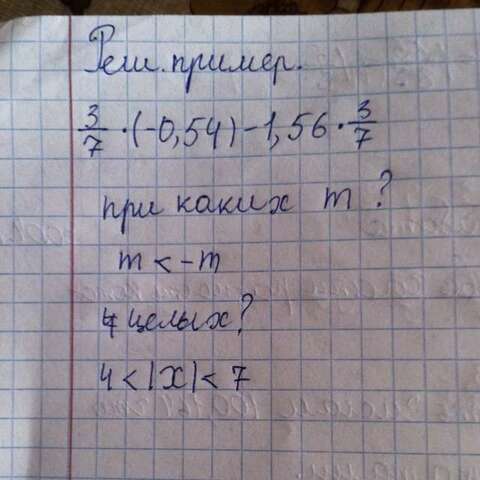 Реш. пример.
3/7 · (-0,54) - 1,56 · 3/7
при каких m ?
m < -m
4 целых?
4 < |x| < 7